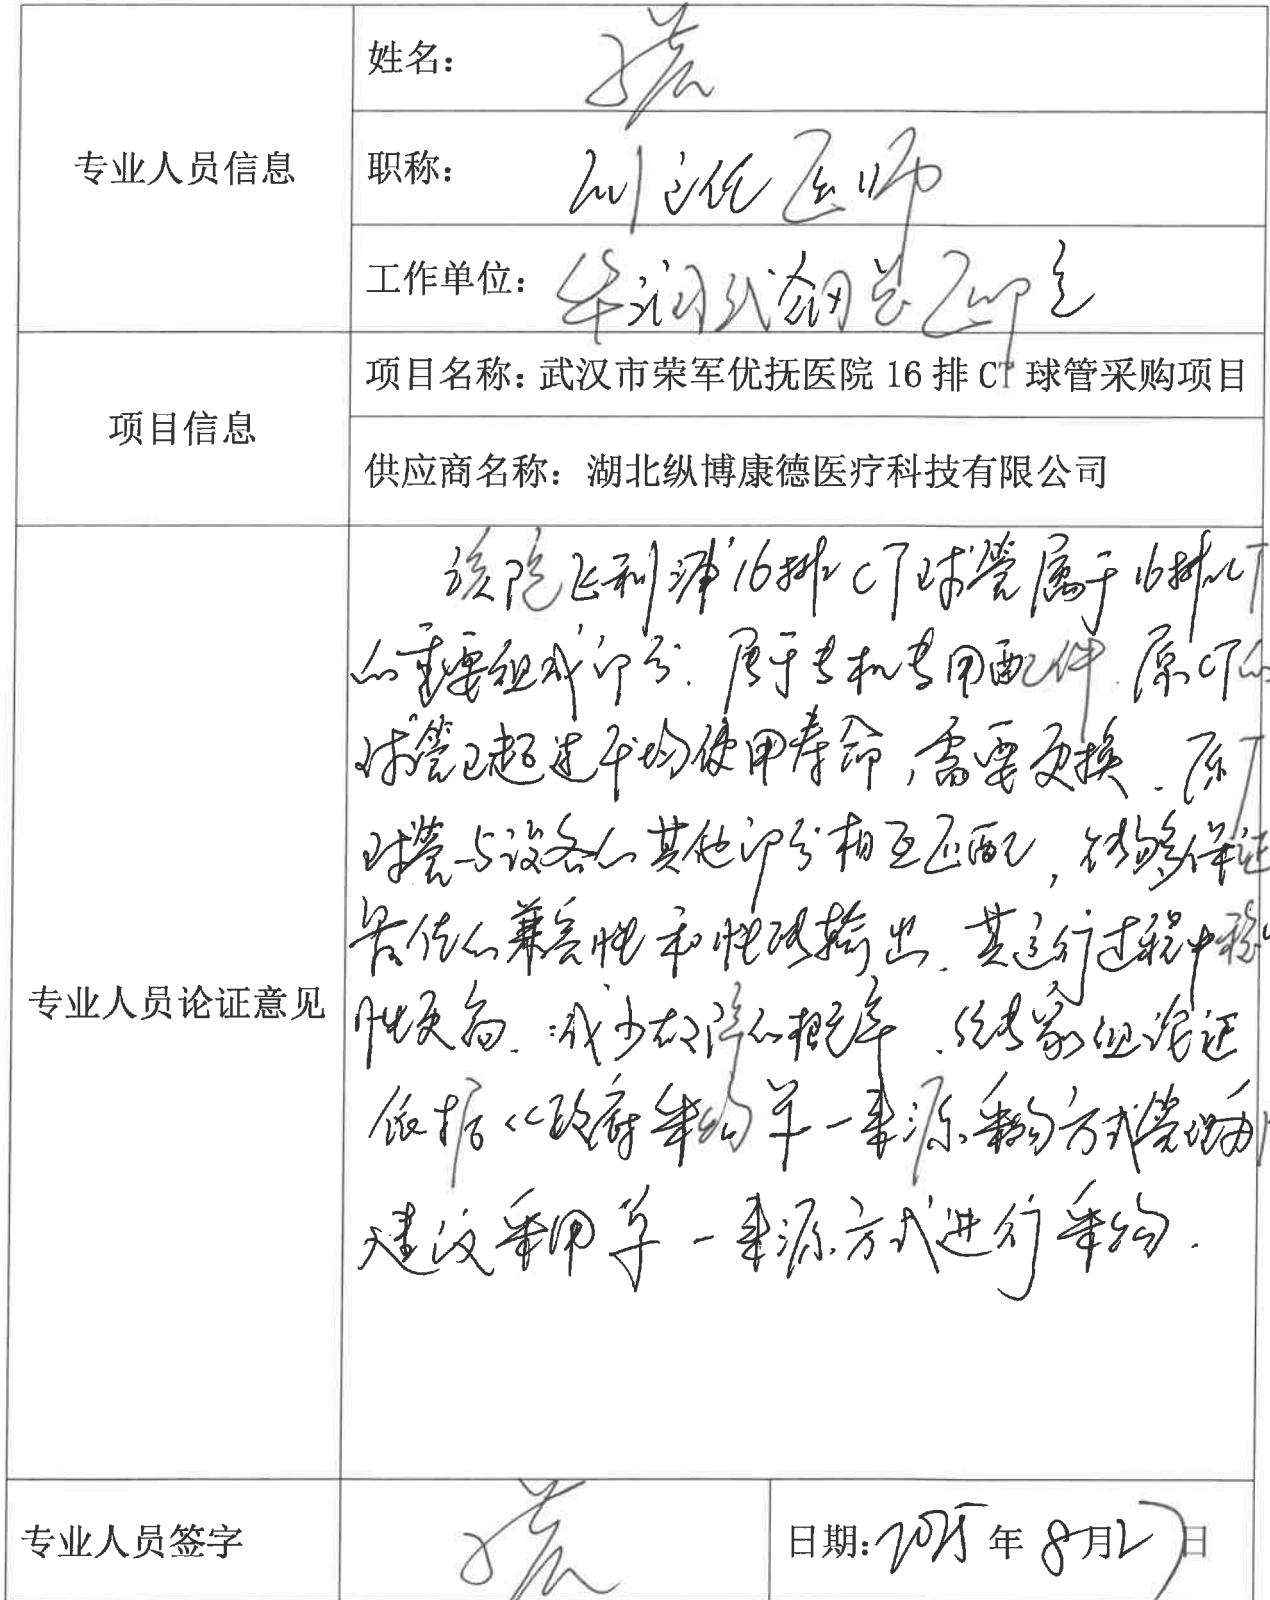 专业人员信息
姓名：
职称： 副主任医师
工作单位： 华润武钢总医院
项目信息
项目名称：武汉市荣军优抚医院 16 排 CT 球管采购项目
供应商名称：湖北纵博康德医疗科技有限公司
专业人员论证意见
该院飞利浦16排CT球管属于16排CT
的重要组成部分. 属于专机专用配件. 原CT的
球管已超过平均使用寿命，需要更换. 原厂
球管与设备的其他部分相互匹配，能够保证
最佳的兼容性和性能输出. 其运行过程中稳定
性更高. 减少故障的概率. 经专家组论证
依据《政府采购单一来源采购方式管理办
建议采用单一来源方式进行采购.
专业人员签字
日期: 2025 年 8 月 27 日